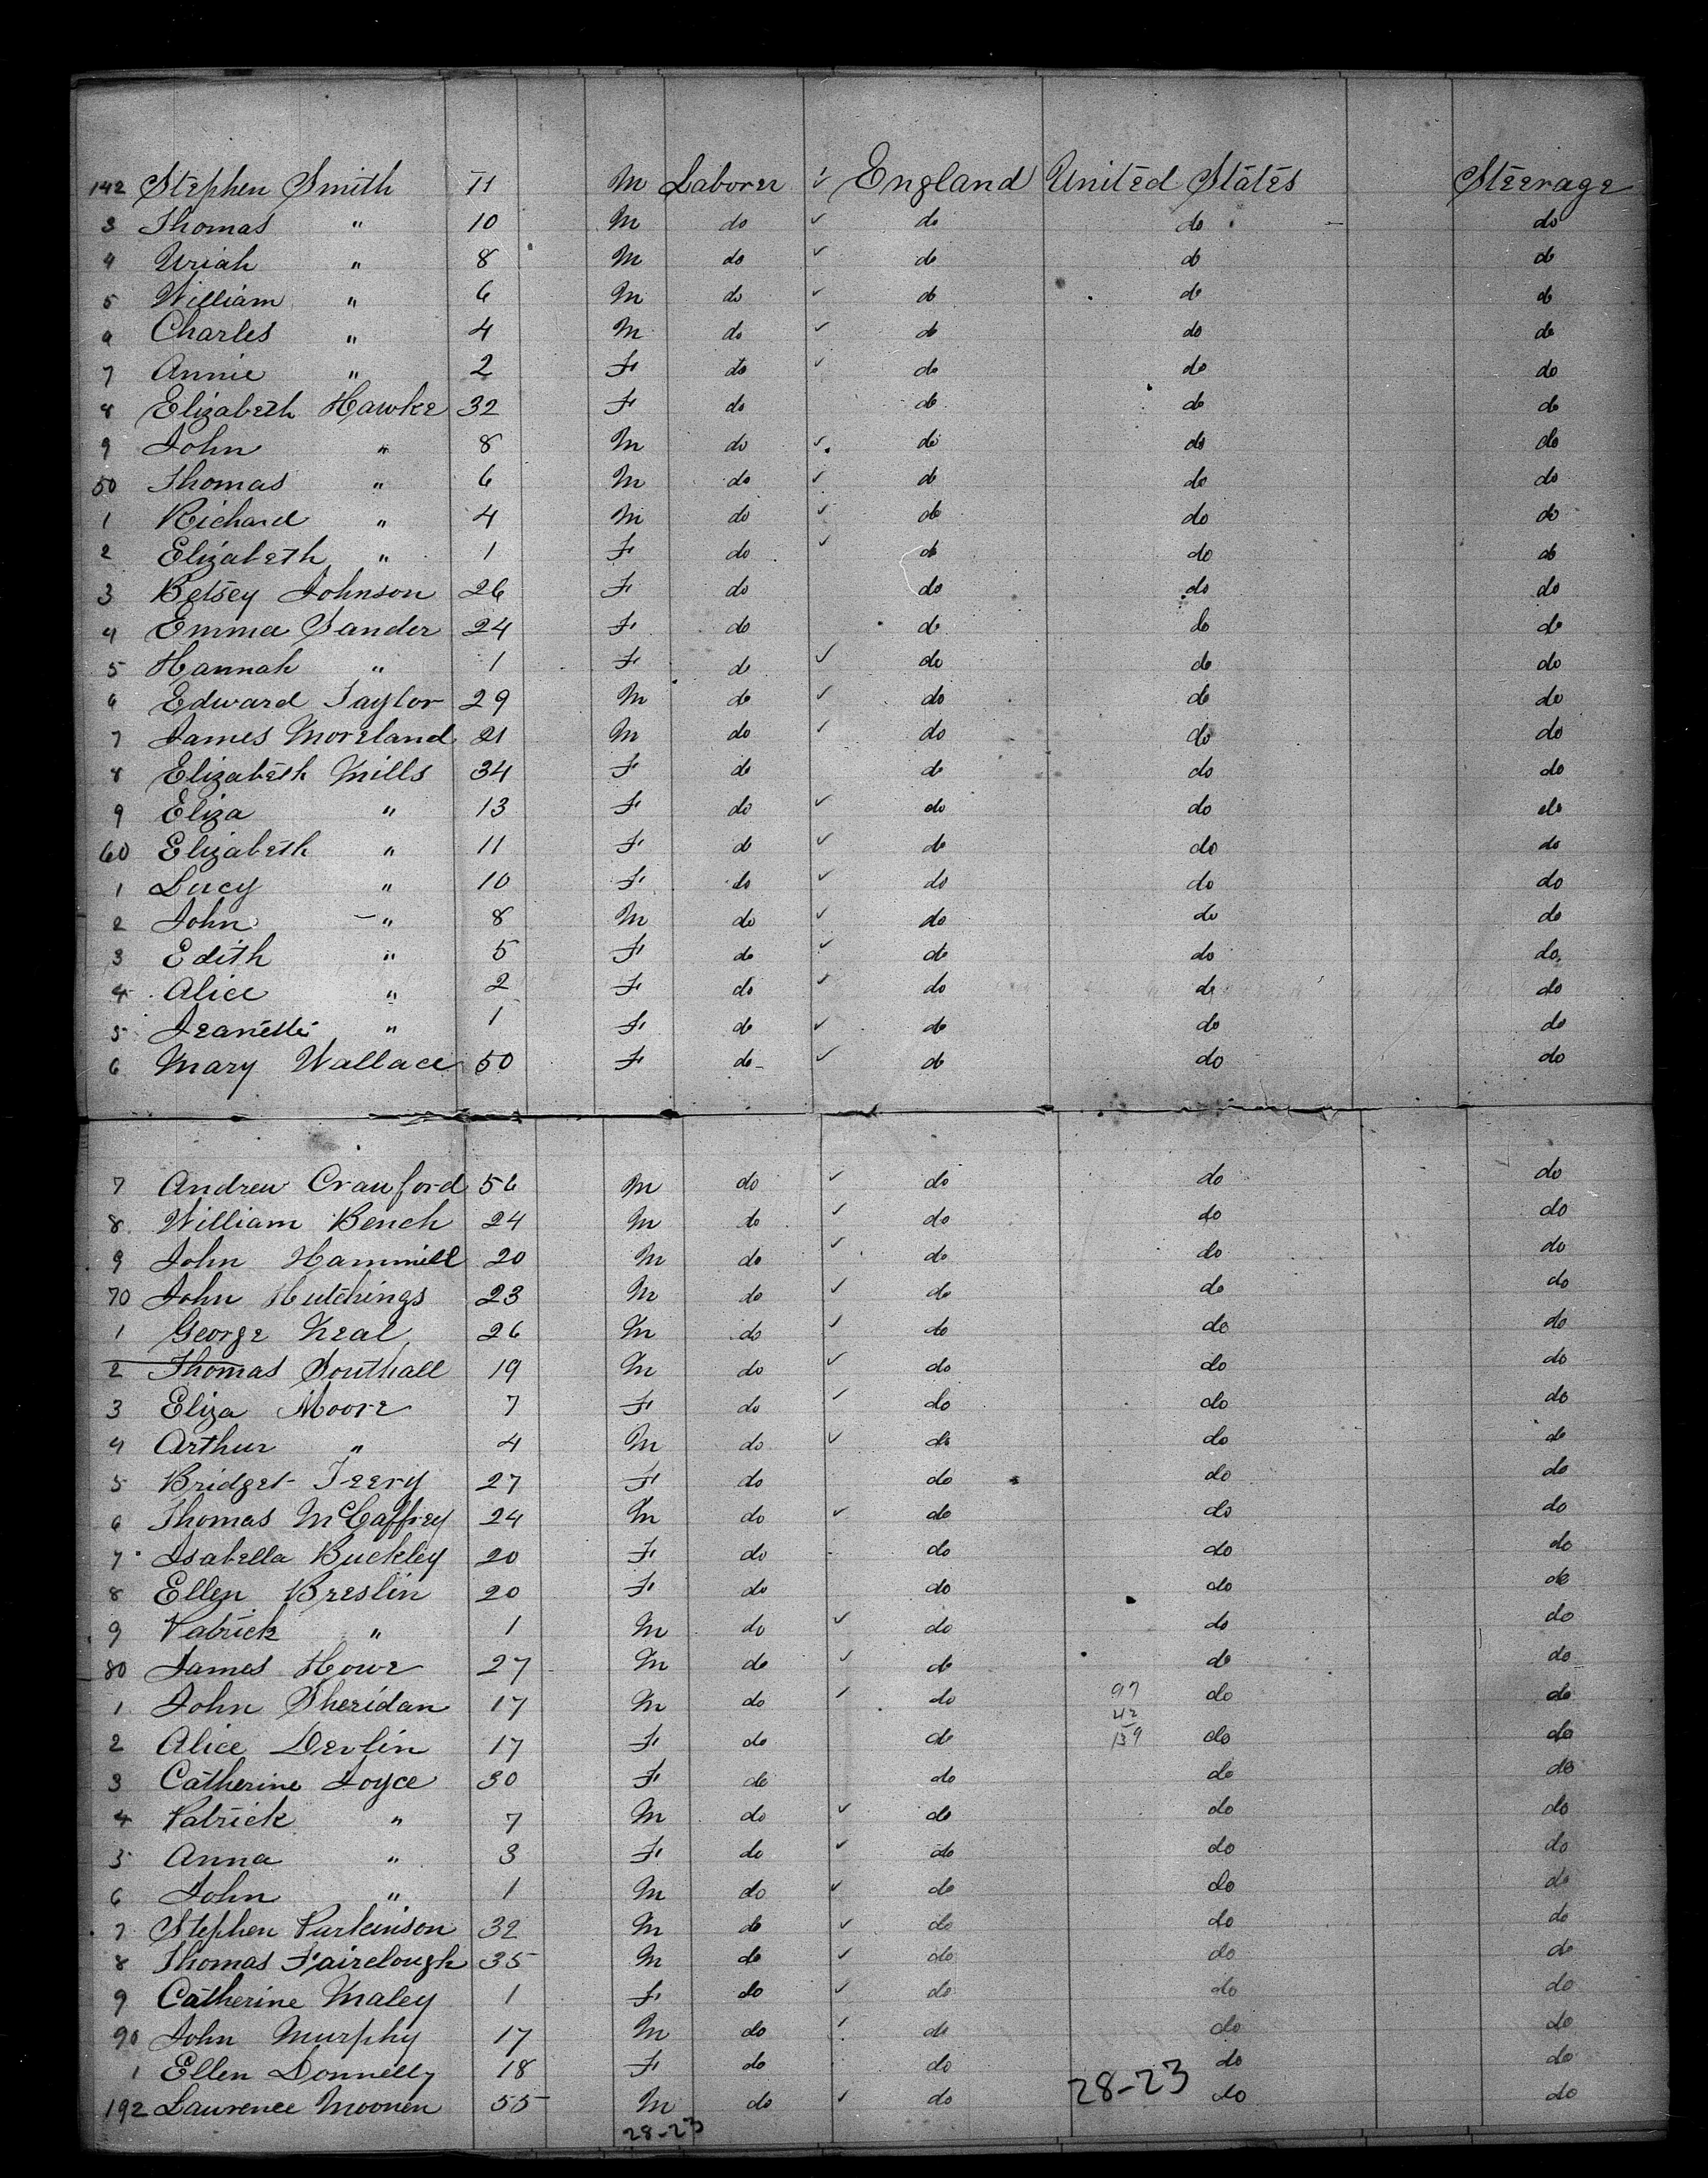 142 Stephen Smith 11 M Laborer ✓ England United States Steerage
3 Thomas " 10 M do ✓ do do do
4 Uriah " 8 M do ✓ do do do
5 William " 6 M do ✓ do do do
6 Charles " 4 M do ✓ do do do
7 Annie " 2 F do ✓ do do do
8 Elizabeth Hawke 32 F do do do do
9 John " 8 M do ✓ do do do
50 Thomas " 6 M do ✓ do do do
1 Richard " 4 M do ✓ do do do
2 Elizabeth " 1 F do ✓ do do do
3 Betsey Johnson 26 F do do do do
4 Emma Sander 24 F do do do do
5 Hannah " 1 F do ✓ do do do
6 Edward Taylor 29 M do ✓ do do do
7 James Moreland 21 M do ✓ do do do
8 Elizabeth Mills 34 F do do do do
9 Eliza " 13 F do ✓ do do do
60 Elizabeth " 11 F do ✓ do do do
1 Lucy " 10 F do ✓ do do do
2 John " 8 M do ✓ do do do
3 Edith " 5 F do ✓ do do do
4 Alice " 2 F do ✓ do do do
5 Jeanette " 1 F do ✓ do do do
6 Mary Wallace 50 F do ✓ do do do
7 Andrew Crawford 56 M do ✓ do do do
8 William Bench 24 M do ✓ do do do
9 John Hammill 20 M do ✓ do do do
70 John Hutchings 23 M do ✓ do do do
1 George Neal 26 M do ✓ do do do
2 Thomas Southall 19 M do ✓ do do do
3 Eliza Moore 7 F do ✓ do do do
4 Arthur " 4 M do ✓ do do do
5 Bridget Teery 27 F do do do do
6 Thomas McCaffrey 24 M do ✓ do do do
7 Isabella Buckley 20 F do do do do
8 Ellen Breslin 20 F do do do do
9 Patrick " 1 M do ✓ do do do
80 James Howe 27 M do ✓ do do do
1 John Sheridan 17 M do ✓ do 97 do do
42
2 Alice Devlin 17 F do do 139 do do
3 Catherine Joyce 30 F do do do do
4 Patrick " 7 M do ✓ do do do
5 Anna " 3 F do ✓ do do do
6 John " 1 M do ✓ do do do
7 Stephen Parkinson 32 M do ✓ do do do
8 Thomas Fairclough 35 M do ✓ do do do
9 Catherine Maley 1 F do ✓ do do do
90 John Murphy 17 M do ✓ do do do
1 Ellen Donnelly 18 F do do do do
192 Laurence Moonen 55 M do ✓ do 28-23 do do
28-23